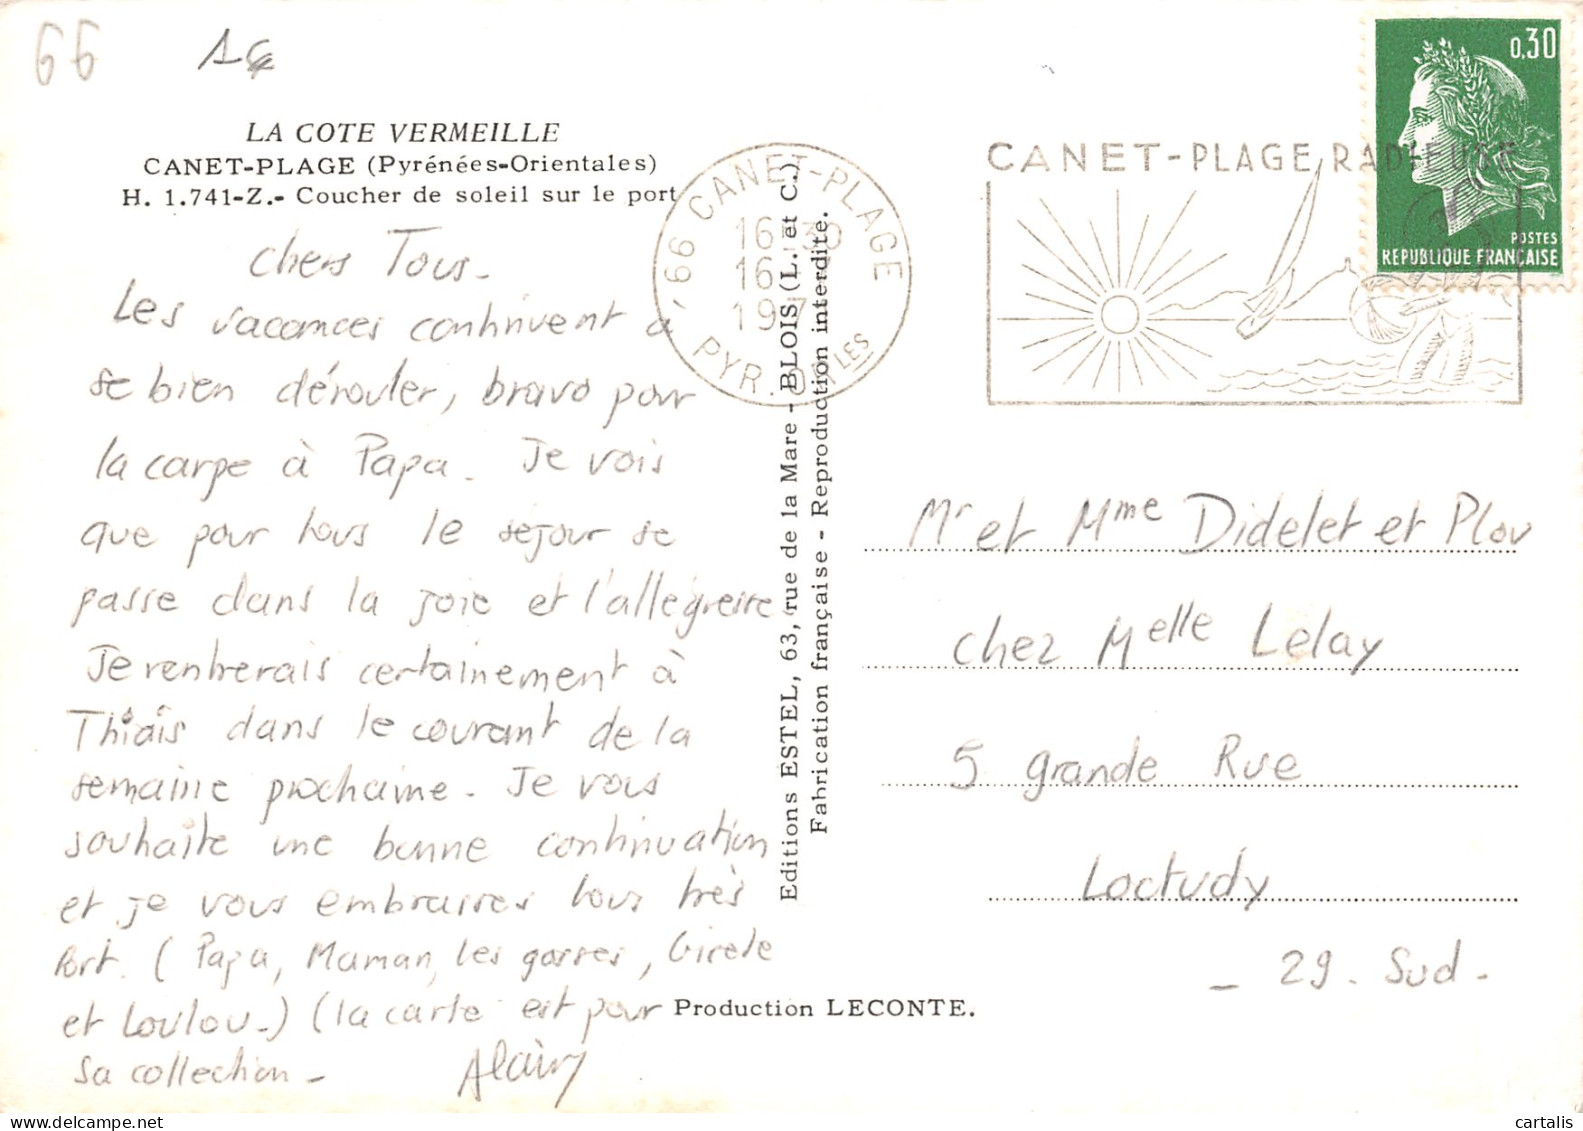 66
1€
LA COTE VERMEILLE
CANET-PLAGE (Pyrénées-Orientales)
H. 1.741-Z.- Coucher de soleil sur le port
Chers Tous.
Les vacances continuent à
se bien dérouler, bravo pour
la carpe à Papa. Je vois
que pour tous le sejour se
passe dans la joie et l'allegresse
Je rentrerais certainement à
Thiais dans le courant de la
semaine prochaine. Je vous
souhaite une bonne continuation
et je vous embrasses tous très
fort. (Papa, Maman, les gosses,
et Loulou.) (la carte est pour
sa collection -
Alain
66 CANET-PLAGE
16-30
16
197
PYR. OR LES
CANET-PLAGE RADIEUSE
0,30
POSTES
REPUBLIQUE FRANÇAISE
Editions ESTEL, 63, rue de la Mare - BLOIS (L. et C.)
Fabrication française - Reproduction interdite.
Mr et Mme Didelet et Plou
chez Melle Lelay
5 grande Rue
Loctudy
- 29. Sud -
Production LECONTE.
cartalis
www.delcampe.net